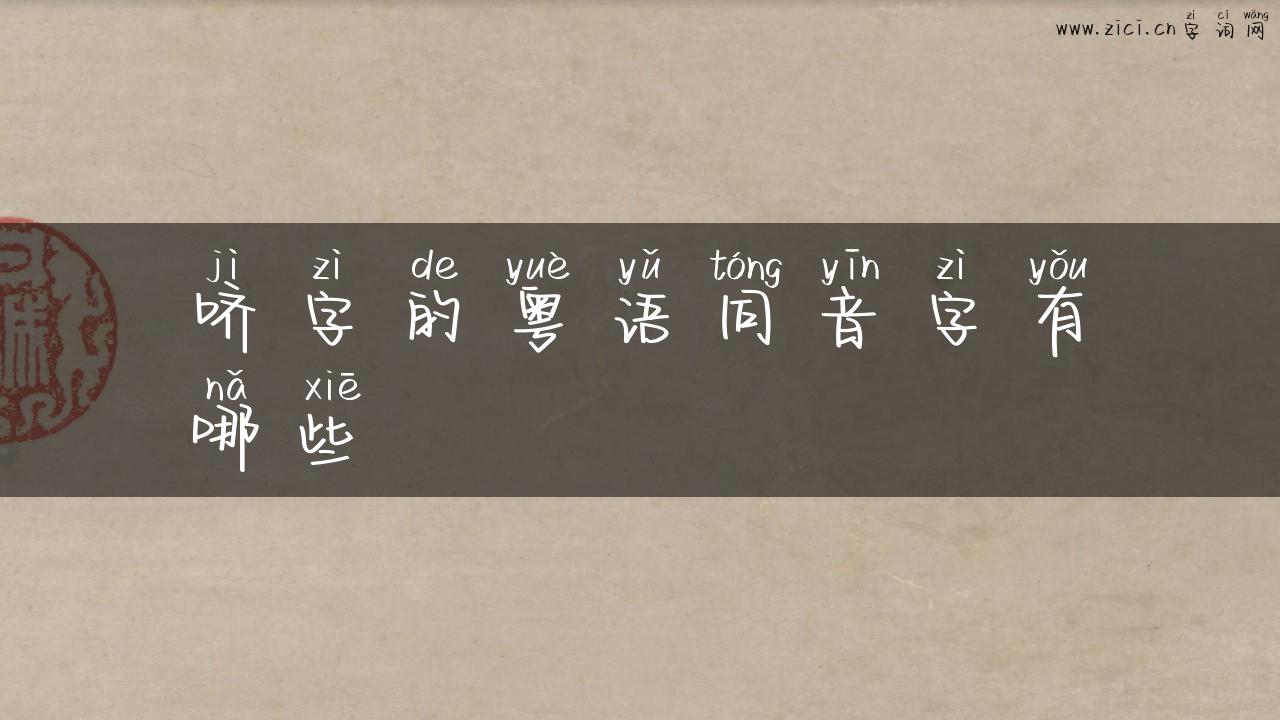 zì cí wǎng
www.zici.cn 字词网
jì zì de yuè yǔ tóng yīn zì yǒu
哜字的粤语同音字有
nǎ xiē
哪些